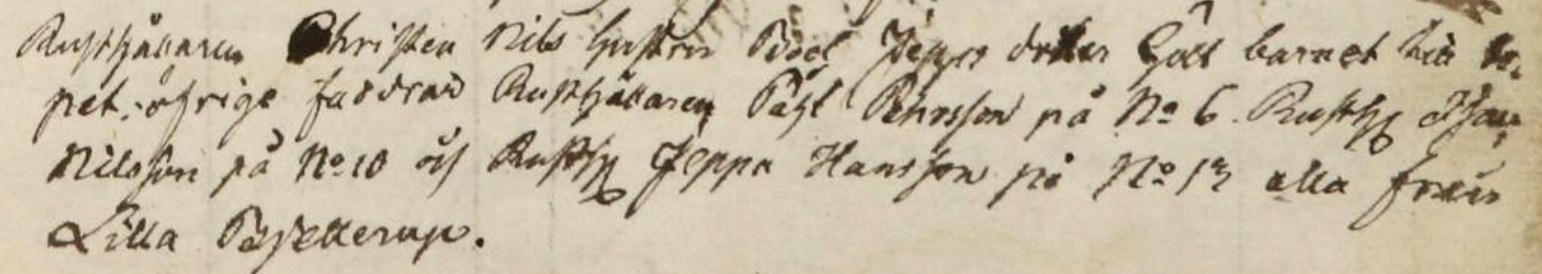 Rusthållaren Christen Nils hustru Boel Jeppes dotter Höll barnet til do-
pet. öfrige faddrar Rusthållaren Påhl Pehrsson på No 6. Rusth Isac
Nilsson på No 10 och Rusth Jeppa Hansson på No 12 alla från
Lilla Beddingerup.